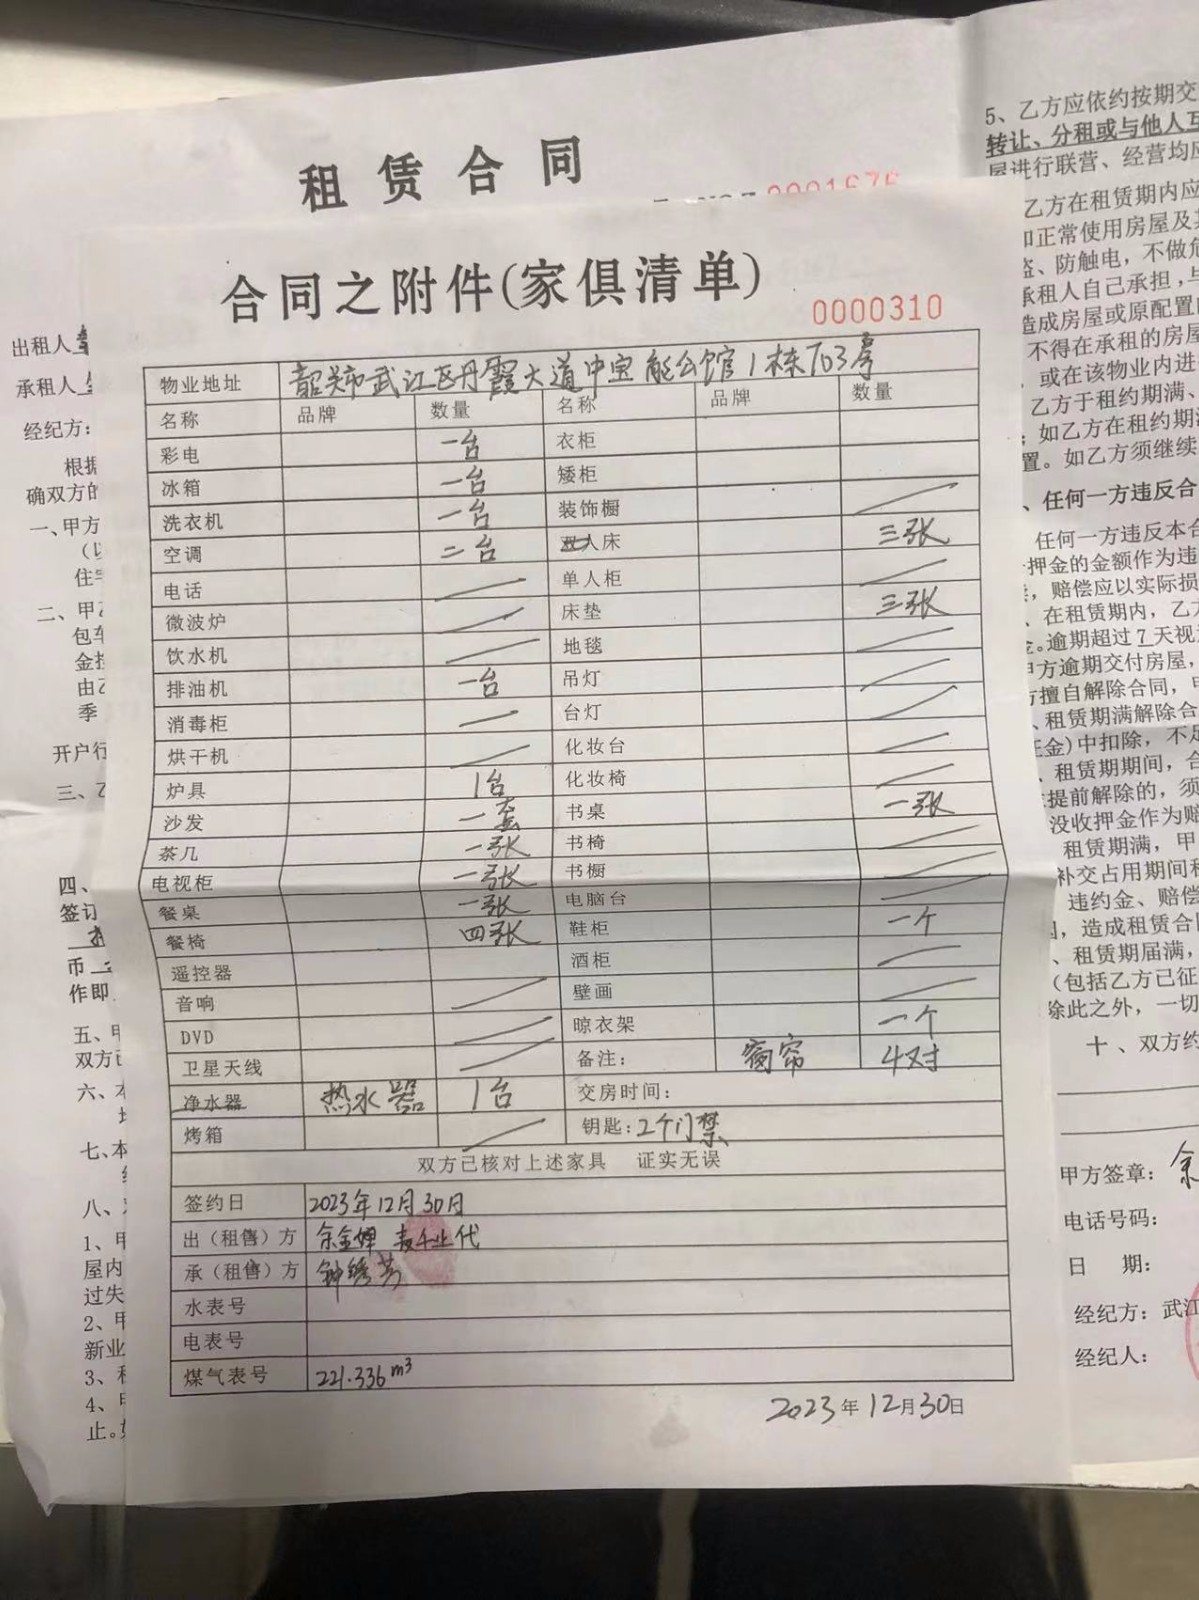 租赁合同
合同之附件(家俱清单)
0000310
物业地址 韶关市武江区丹霞大道中宝能公馆1栋703房
名称 品牌 数量 名称 品牌 数量
彩电 一台 衣柜
冰箱 一台 矮柜
洗衣机 一台 装饰橱
空调 二台 人床 三张
电话 单人柜
微波炉 床垫 三张
饮水机 地毯
排油机 一台 吊灯
消毒柜 台灯
烘干机 化妆台
炉具 1台 化妆椅
沙发 一套 书桌 一张
茶几 一张 书椅
电视柜 一张 书橱
餐桌 一张 电脑台
餐椅 四张 鞋柜 一个
遥控器 酒柜
音响 壁画
DVD 晾衣架 一个
卫星天线 备注: 窗帘 4对
净水器 热水器 1台 交房时间:
烤箱 钥匙:2个门禁
双方已核对上述家具 证实无误
签约日 2023年12月30日
出(租售)方 余金婵
承(租售)方 钟绣芳
水表号
电表号
煤气表号 221.336m³
2023年12月30日
出租人
承租人
经纪方:
根据
确双方的
一、甲方
住宅
二、甲乙
包车
由乙
季
开户行
三、乙
四、
签订
币
作即
五、甲
双方已
六、本
七、本
八、
1、甲
屋内
过失
2、甲
新业
3、租
4、甲
止。如
5、乙方应依约按期交
转让、分租或与他人互
屋进行联营、经营均应
乙方在租赁期内应
和正常使用房屋及其
盗、防触电，不做危
承租人自己承担，与
造成房屋或原配置
不得在承租的房屋
或在该物业内进
乙方于租约期满、
；如乙方在租约期满
置。如乙方须继续
、任何一方违反合
任何一方违反本合
押金的金额作为违
赔偿应以实际损
、在租赁期内，乙方
金。逾期超过7天视
甲方逾期交付房屋，
方擅自解除合同，甲
、租赁期满解除合
证金)中扣除，不足
、租赁期期间，合
提前解除的，须
没收押金作为赔
租赁期满，甲
补交占用期间租
违约金、赔偿
造成租赁合同
、租赁期届满，
(包括乙方已征
除此之外，一切
十、双方约
甲方签章：余
电话号码：
日 期：
经纪方：武江
经纪人：